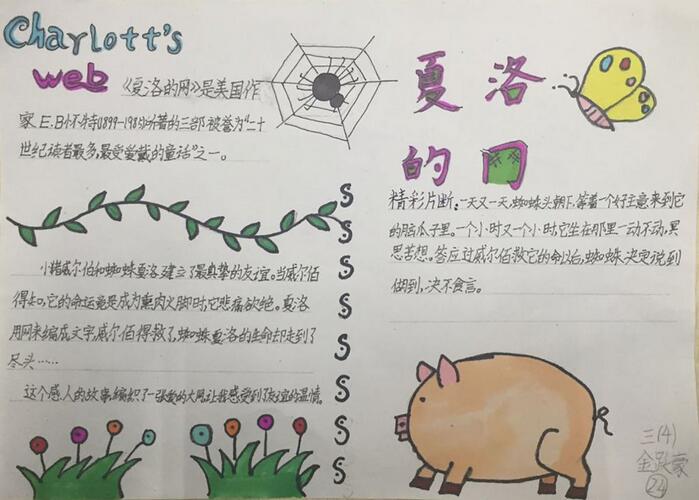 Charlott's
web
《夏洛的网》是美国作
家E.B·怀特(1899-1985)所著的三部被誉为"二十
世纪读者最多,最受爱戴的童话"之一。
小猪威尔伯和蜘蛛夏洛建立了最真挚的友谊。当威尔佰
得知,它的命运竟是成为熏肉火脚时,它悲痛欲绝。夏洛
用网来编成文字,威尔佰得救了,蜘蛛夏洛的生命却走到了
尽头……
这个感人的故事,编织了一张爱的大网,让我感受到了友谊的温情。
S
S
S
S
S
S
S
S
夏洛
的网
精彩片断:一天又一天,蜘蛛头朝下,等着一个好主意来到它
的脑瓜子里。一个小时又一个小时,它坐在那里一动不动,冥
思苦想。答应过威尔佰救它的命以后,蜘蛛决定说到
做到,决不食言。
三(4)
24